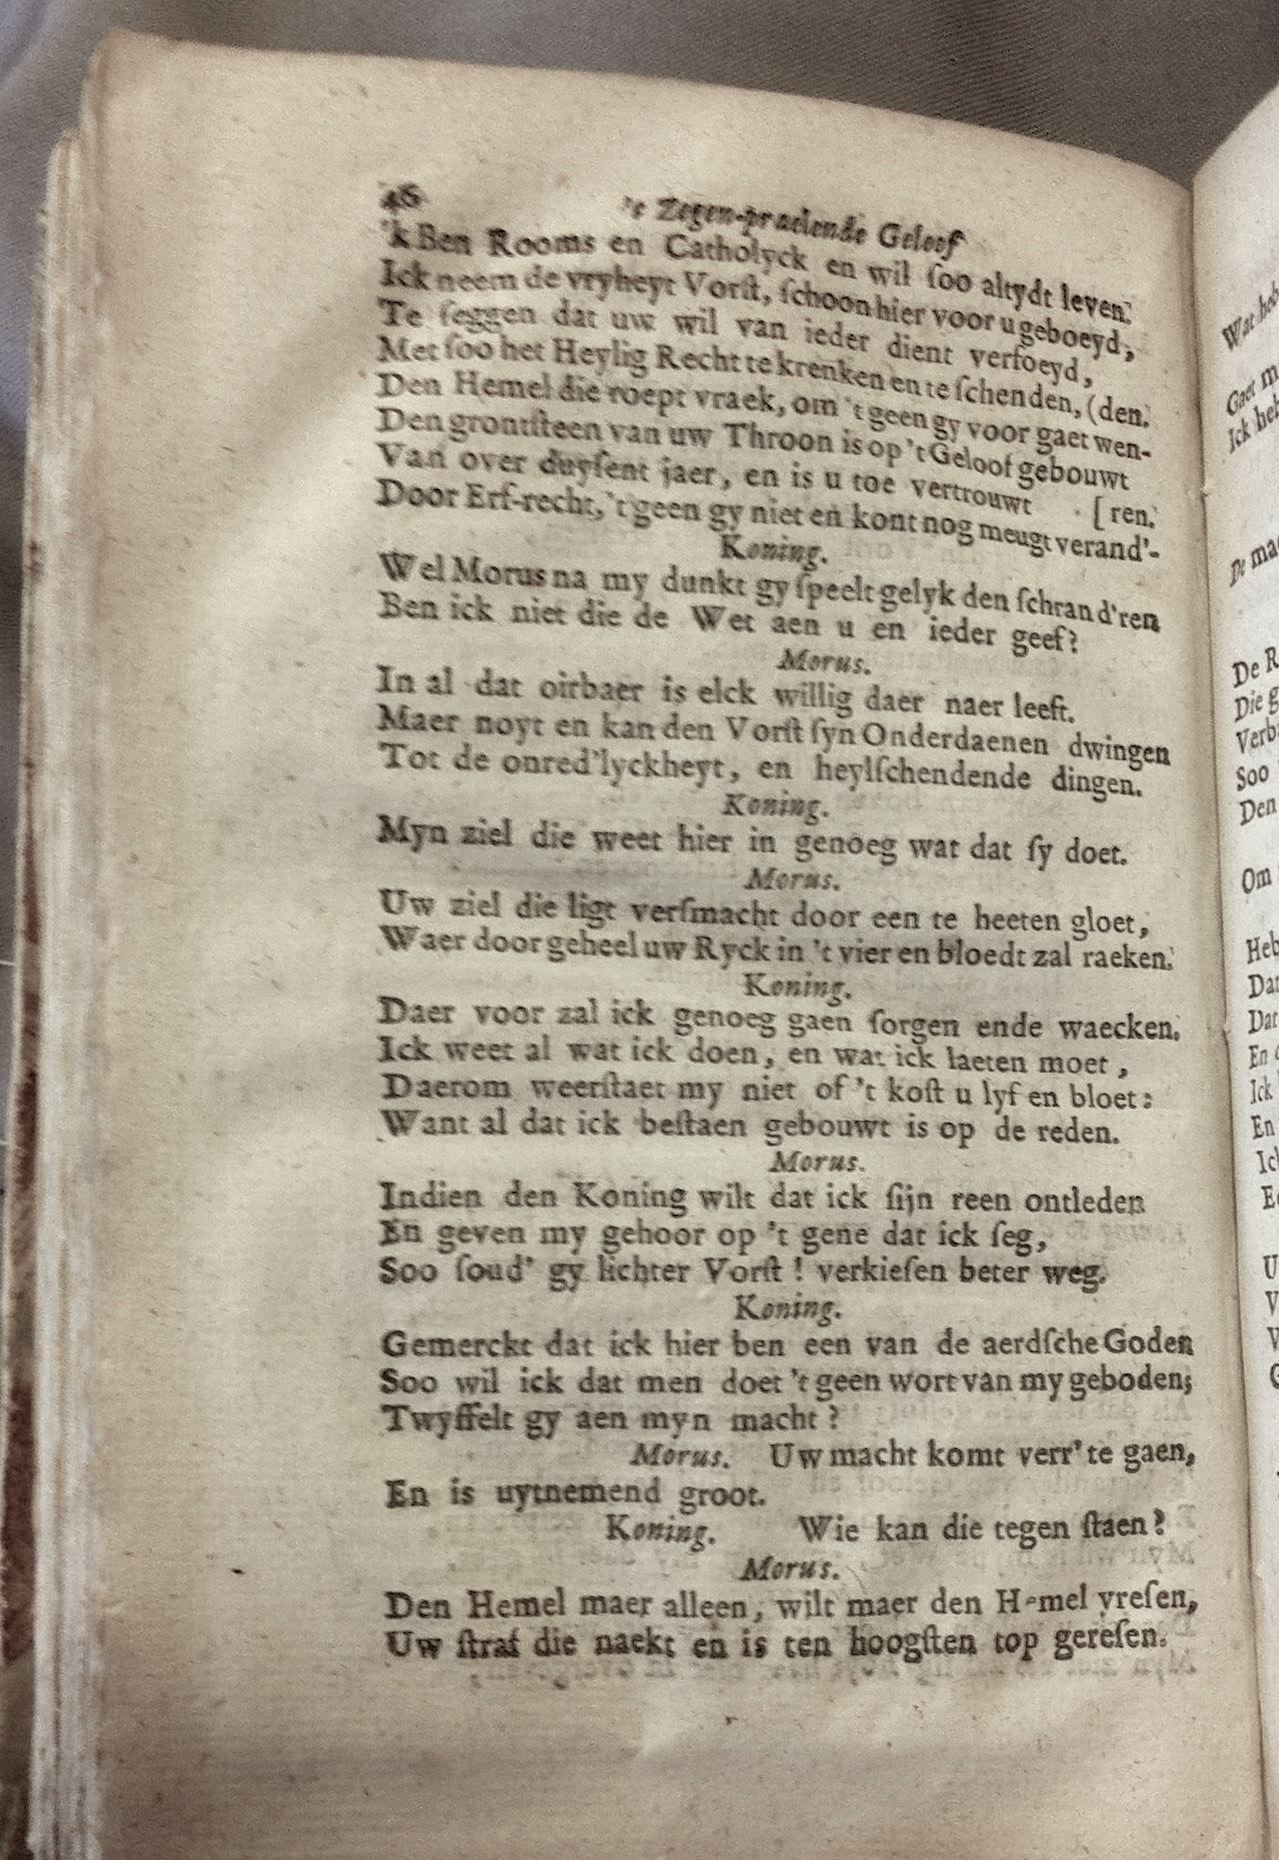 46 't Zegen-praelende Geloof
'k Ben Rooms en Catholyck en wil ſoo altydt leven.
Ick neem de vryheyt Vorſt, ſchoon hier voor u geboeyd,
Te ſeggen dat uw wil van ieder dient verfoeyd,
Met ſoo het Heylig Recht te krenken en te ſchenden, (den.
Den Hemel die roept vraek, om 't geen gy voor gaet wen-
Den grontſteen van uw Throon is op 't Geloof gebouwt
Van over duyſent jaer, en is u toe vertrouwt [ren.
Door Erf-recht, 't geen gy niet en kont nog meugt verand'-
Koning.
Wel Morus na my dunkt gy ſpeelt gelyk den ſchrand'ren
Ben ick niet die de Wet aen u en ieder geef?
Morus.
In al dat oirbaer is elck willig daer naer leeft.
Maer noyt en kan den Vorſt ſyn Onderdaenen dwingen
Tot de onred'lyckheyt, en heylſchendende dingen.
Koning.
Myn ziel die weet hier in genoeg wat dat ſy doet.
Morus.
Uw ziel die ligt verſmacht door een te heeten gloet,
Waer door geheel uw Ryck in 't vier en bloedt zal raeken.
Koning.
Daer voor zal ick genoeg gaen ſorgen ende waecken.
Ick weet al wat ick doen, en wat ick laeten moet,
Daerom weerſtaet my niet of 't koſt u lyf en bloet:
Want al dat ick beſtaen gebouwt is op de reden.
Morus.
Indien den Koning wilt dat ick ſijn reen ontleden
En geven my gehoor op 't gene dat ick ſeg,
Soo ſoud' gy lichter Vorſt! verkieſen beter weg.
Koning.
Gemerckt dat ick hier ben een van de aerdſche Goden
Soo wil ick dat men doet 't geen wort van my geboden;
Twyffelt gy aen myn macht?
Morus. Uw macht komt verr' te gaen,
En is uytnemend groot.
Koning. Wie kan die tegen ſtaen?
Morus.
Den Hemel maer alleen, wilt maer den Hemel vreſen,
Uw ſtraf die naekt en is ten hoogſten top gereſen.
Wat
Gaet
Ick
De
De
Die
Soo
Den
Om
Heb
En
Ick
En